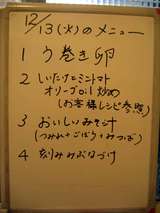 12/13(火)のメニュー
1 う巻き卵
2 しいたけとミニトマト
オリーブoil炒め
(お客様レシピ参照)
3 おいしいみそ汁
(つみれ+ごぼう+みつば)
4 刻み